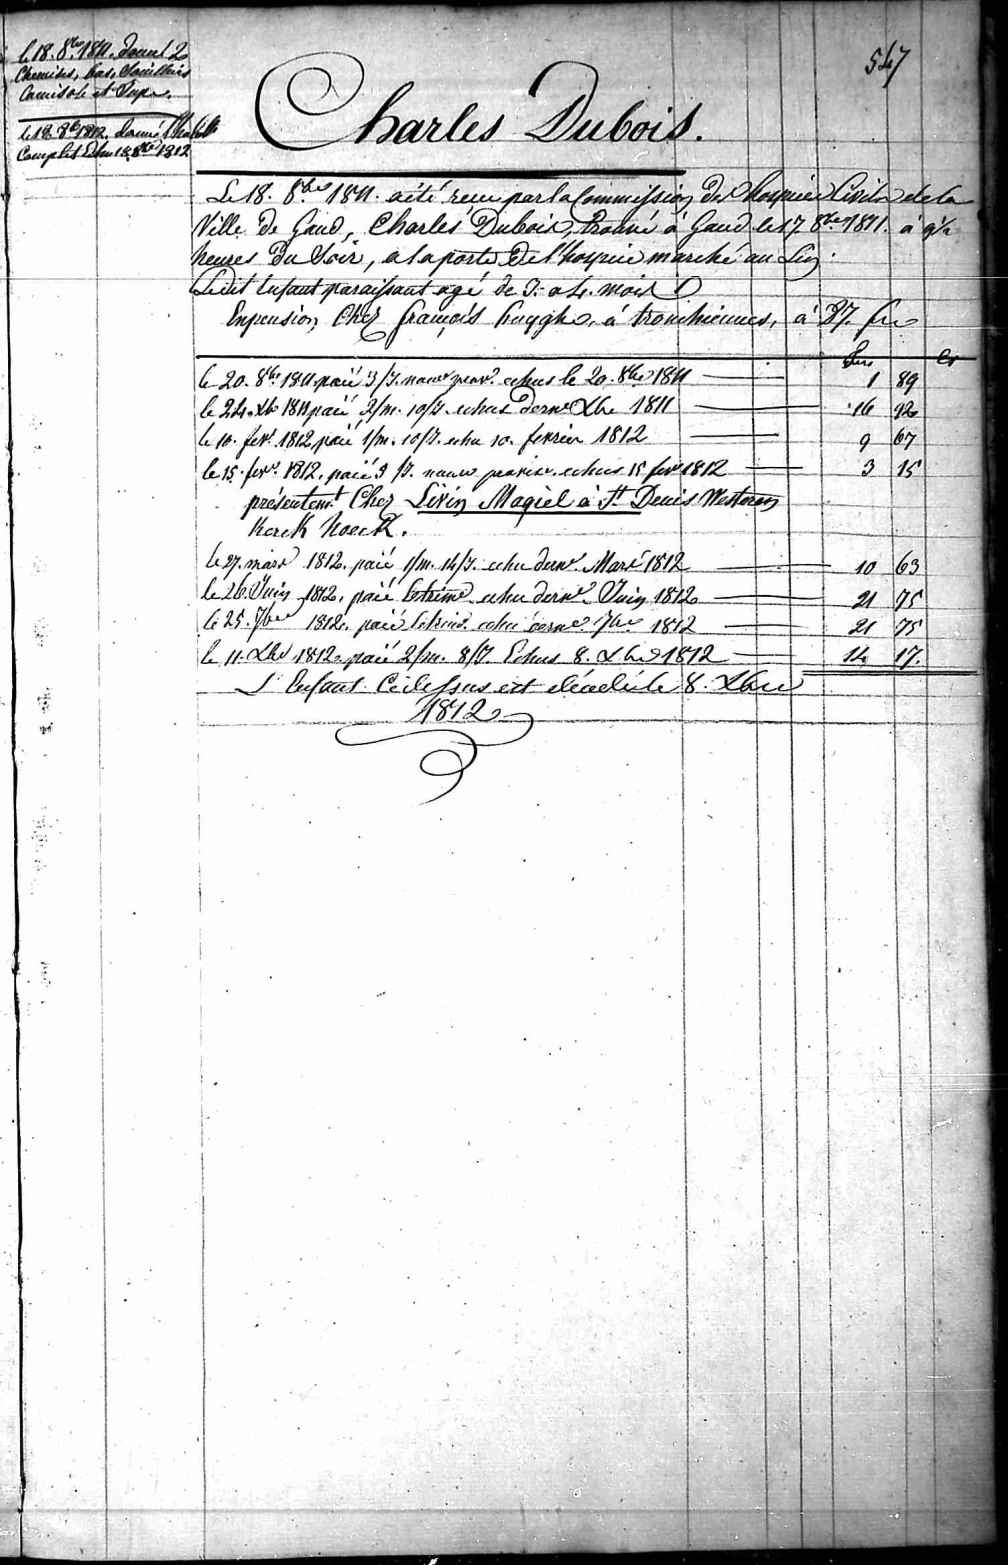 547
le 18. 8bre 1811. donné 2
Chemises, bas, Souilliers
Camisole et Jupe.
le 18 8bre 1812. donné
Complet Echu 18 8bre 1812
Charles Dubois.
Le 18. 8bre 1811. a été reçu par la Commission des hospices Civils de la
Ville de Gand, Charles Dubois, trouvé à Gand le 17 8bre 1811. à 9½
heures du Soir, a la porte de l'hospice marché au Lin.
Ledit Enfant paraissant agé de 3. a 4. mois
Enpension, Chez françois huyghe, à tronchiennes, à 87. frs
frs Cs
le 20. 8bre 1811 paié 3/J. nouv. prov. echus le 20. 8bre 1811 — 1 89
le 24. Xbre 1811 paié 2/m. 10/J. echus derne Xbre 1811 — 16 92
le 10. fevr. 1812 paié 1/m. 10/J. echu 10. fevrier 1812 — 9 67
le 15. fevr. 1812. paié 5 /J. nouv provis. echus 15 fevr 1812 — 3 15
présentemt Chez Livin Magiel à St. Denis Westrem
Kerck hoeck.
le 27. mars 1812. paié 1/m. 14/J. echu dern. Mars 1812 — 10 63
le 26. Juin 1812. paié letrime. echu derne. Juin 1812 — 21 75
le 25. 7bre 1812. paié letrim. echu derne. 7bre 1812 — 21 75
le 11. Xbre 1812. paié 2/m. 8/J. Echus 8. Xbre 1812 — 14 17.
L'Enfant Cidessus est décédé le 8. Xbre
1812